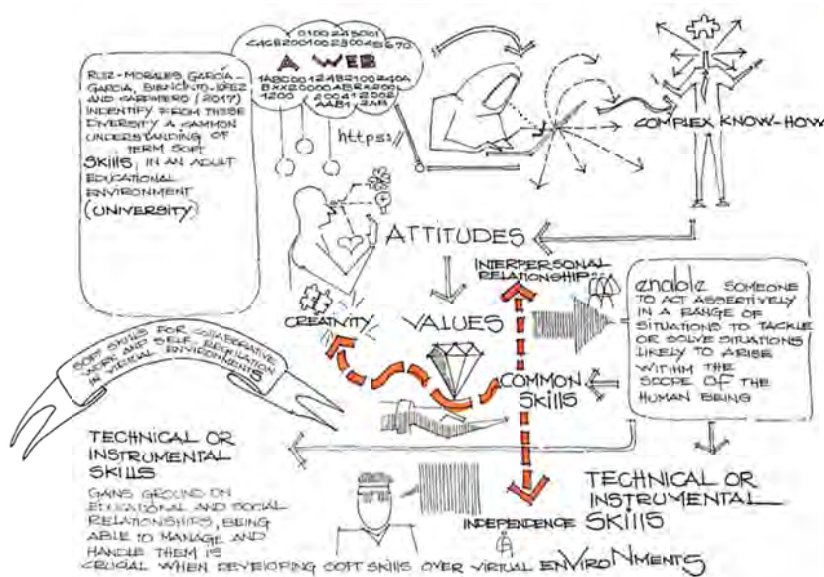 0100245001
A WEB
RUIZ-MORALES GARCÍA-
GARCIA, BIENCINTO-LÓPEZ
AND (2017)
INDENTIFY FROM THESE
DIVERSITY A CAMMON
UNDERSTANDING OF
TERM SOFT
SKILLS, IN AN ADULT
EDUCATIONAL
ENVIRONMENT
(UNIVERSITY)
https://
COMPLEX KNOW-HOW
ATTITUDES
INTERPERSONAL
RELATIONSHIPS
CREATIVITY
VALUES
COMMON
SKILLS
enable SOMEONE
TO ACT ASSERTIVELY
IN A RANGE OF
SITUATIONS TO TACKLE
OR SOLVE SITUATIONS
LIKELY TO ARISE
WITHM THE
SCOPE OF THE
HUMAN BEING
SOFT SKILLS FOR COLLABORATIVE
WORK AND SELF-REGULATION
IN VIRTUAL ENVIRONMENTS
TECHNICAL OR
INSTRUMENTAL
SKILLS
GAINS GROUND ON
EDUCATIONAL AND SOCIAL
RELATIONSHIPS, BEING
ABLE TO MANAGE AND
HANDLE THEM IS
CRUCIAL WHEN DEVELOPING SOFT SKILLS OVER VIRTUAL ENVIRONMENTS
INDEPENDENCE
TECHNICAL OR
INSTRUMENTAL
SKILLS